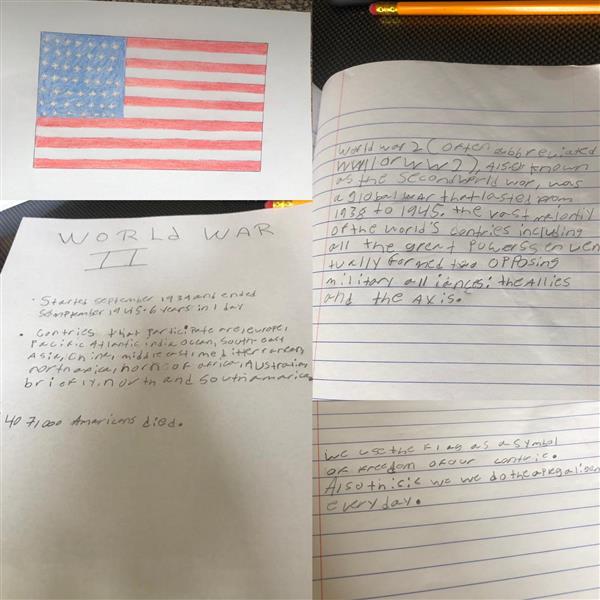 WORLD WAR
II
· Started september 1939 and ended
September 1945. 6 years in 1 day
· Contries that participate are, europe,
Pacific Atlantic india Ocean, South-east
Asia, China, middle east, mediterranean,
north africa, horn of africa, Australia,
briefly, north and South america.
407,000 Americans died.
World war 2 (often abbreviated
WWII or WW2), also known
as the second world war, was
a global war that lasted from
1939 to 1945. the vast majority
of the world's contries including
all the great powers even
tually formed two opposing
military alliances: the Allies
and the Axis.
we use the Flag as a symbol
of freedom of our contrie.
Also this is we we do the
every day.